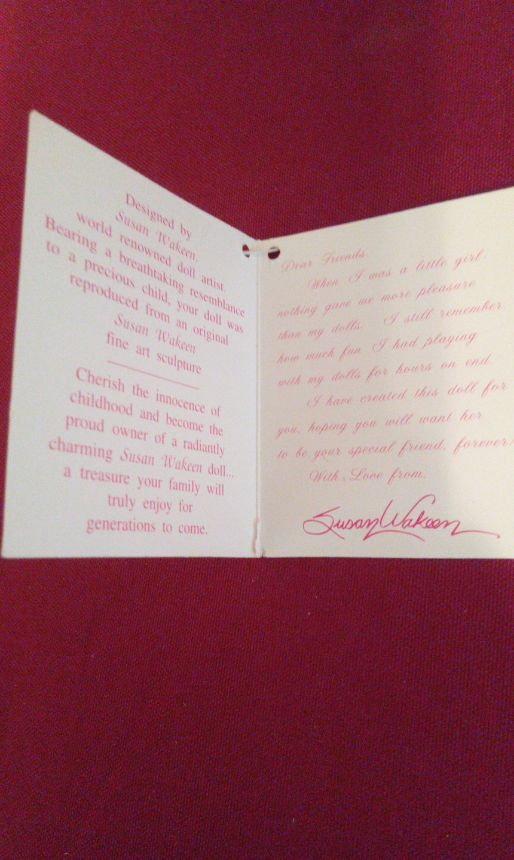 Designed by
Susan Wakeen,
world renowned doll artist.
Bearing a breathtaking resemblance
to a precious child, your doll was
reproduced from an original
Susan Wakeen
fine art sculpture
Cherish the innocence of
childhood and become the
proud owner of a radiantly
charming Susan Wakeen doll...
a treasure your family will
truly enjoy for
generations to come.
Dear Friends,
When I was a little girl,
nothing gave me more pleasure
than my dolls. I still remember
how much fun I had playing
with my dolls for hours on end.
I have created this doll for
you, hoping you will want her
to be your special friend, forever!
With Love from,
Susan Wakeen